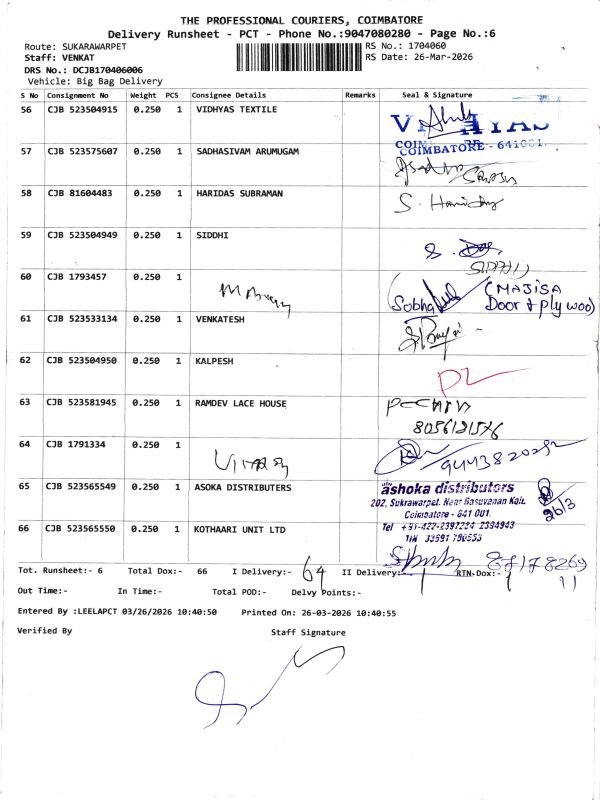 THE PROFESSIONAL COURIERS, COIMBATORE
Delivery Runsheet - PCT - Phone No.:9047080280 - Page No.:6
Route: SUKARAWARPET
RS No.: 1704060
Staff: VENKAT
RS Date: 26-Mar-2026
DRS No.: DCJB170406006
Vehicle: Big Bag Delivery
S No Consignment No Weight PCS Consignee Details Remarks Seal & Signature
56 CJB 523504915 0.250 1 VIDHYAS TEXTILE
COIMBATORE - 641001.
57 CJB 523575607 0.250 1 SADHASIVAM ARUMUGAM
58 CJB 81604483 0.250 1 HARIDAS SUBRAMAN
S. Haridas
59 CJB 523504949 0.250 1 SIDDHI
60 CJB 1793457 0.250 1
Sobha (MAJISA
Door & plywood)
61 CJB 523533134 0.250 1 VENKATESH
62 CJB 523504950 0.250 1 KALPESH
63 CJB 523581945 0.250 1 RAMDEV LACE HOUSE
64 CJB 1791334 0.250 1
65 CJB 523565549 0.250 1 ASOKA DISTRIBUTORS
ashoka distributors
202, Sukrawarpet, Near Basuvanan Koil,
Coimbatore - 641 001.
26/3
66 CJB 523565550 0.250 1 KOTHAARI UNIT LTD
Tel +91-422-2397224 2394943
TIN 33591 780553
Tot. Runsheet:- 6 Total Dox:- 66 I Delivery:- 64 II Delivery:- RTN-Dox:-
Out Time:- In Time:- Total POD:- Delvy Points:-
Entered By :LEELAPCT 03/26/2026 10:40:50 Printed On: 26-03-2026 10:40:55
Verified By Staff Signature